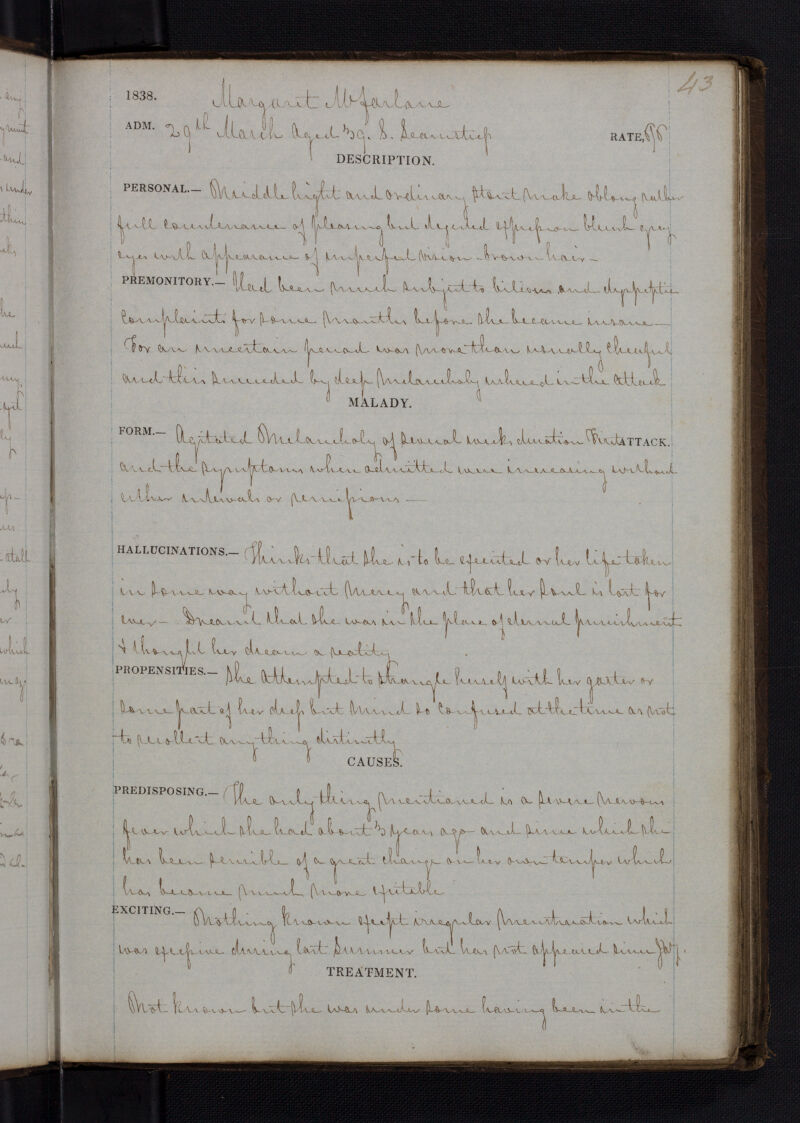 43
1838. Margaret McFarlane
ADM. 29th March Aged 39. S. Seamstress RATE,
DESCRIPTION.
PERSONAL.— Middle hight and ordinary stout make oblong rather
full countenance of pleasing but dejected expression blueish grey
eyes with appearance of imperfect vision - brown hair —
PREMONITORY.— Had been much subject to bilious and dyspeptic
Complaints for some months before she became insane —
For an uncertain period was more than usually cheerful
and this succeeded by deep melancholy ushered in the attack
MALADY.
FORM.— Agitated Melancholy of several weeks duration First ATTACK.
and the symptoms when admitted were increasing without
either intervals or remissions —
HALLUCINATIONS.— Thinks that she is to be executed or her life taken
in some way without mercy and that her soul is lost for
ever — Dreamt that she was in the place of eternal punishment
& thought her dream a reality
PROPENSITIES.— She attempted to strangle herself with her garter or
some part of her dress but mind so confused at the time as not
to recollect any thing distinctly
CAUSES.
PREDISPOSING.— The only thing mentioned is a severe nervous
fever which she had about 3 years ago - and since which she
has been sensible of a great change on her own temper which
has become much more irritable
EXCITING.— Nothing known except irregular menstruation which
was excessive during last Summer but has not appeared since
TREATMENT.
Not known but she was under some having been in the